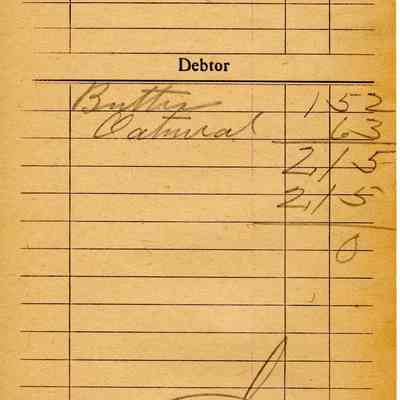 Debtor
Butter 1 52
Oatmeal 63
2 15
2 15
0